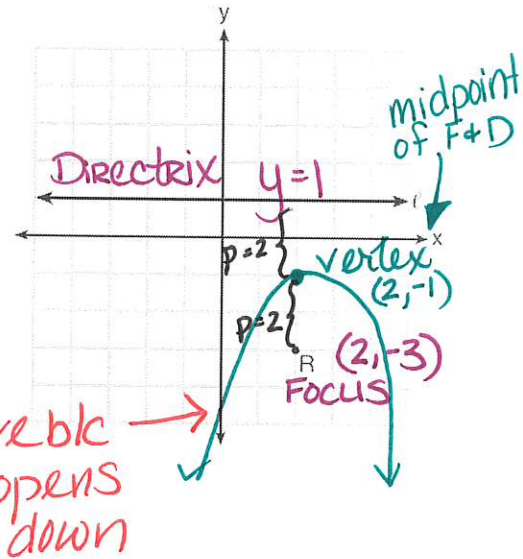 y
midpoint
of F&D
Directrix y=1
x
p=2
vertex
(2,-1)
p=2
R (2,-3)
FOCUS
opens
down